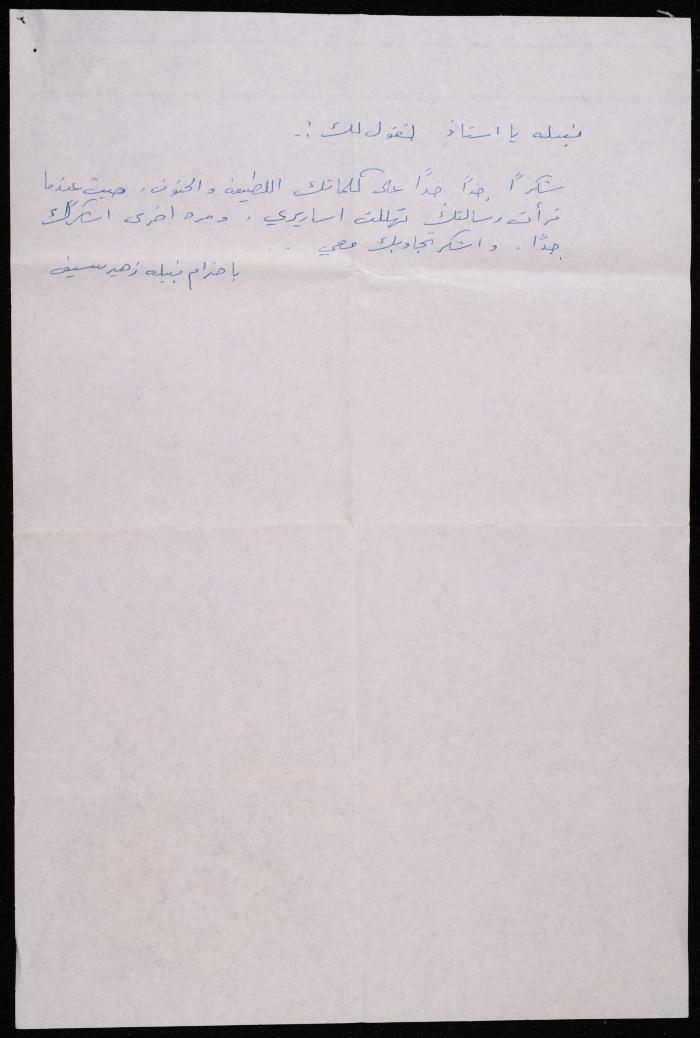 نبيله يا استاذ لتقول لك :.
شكراً جداً جداً على كلماتك اللطيفه والحنون، حيث عندما
قرأت رسالتك تهللت اساريري، ومره اخرى اشكرك
جداً. واشكر تجاوبك معي ...
باحترام نبيله زهير سيف